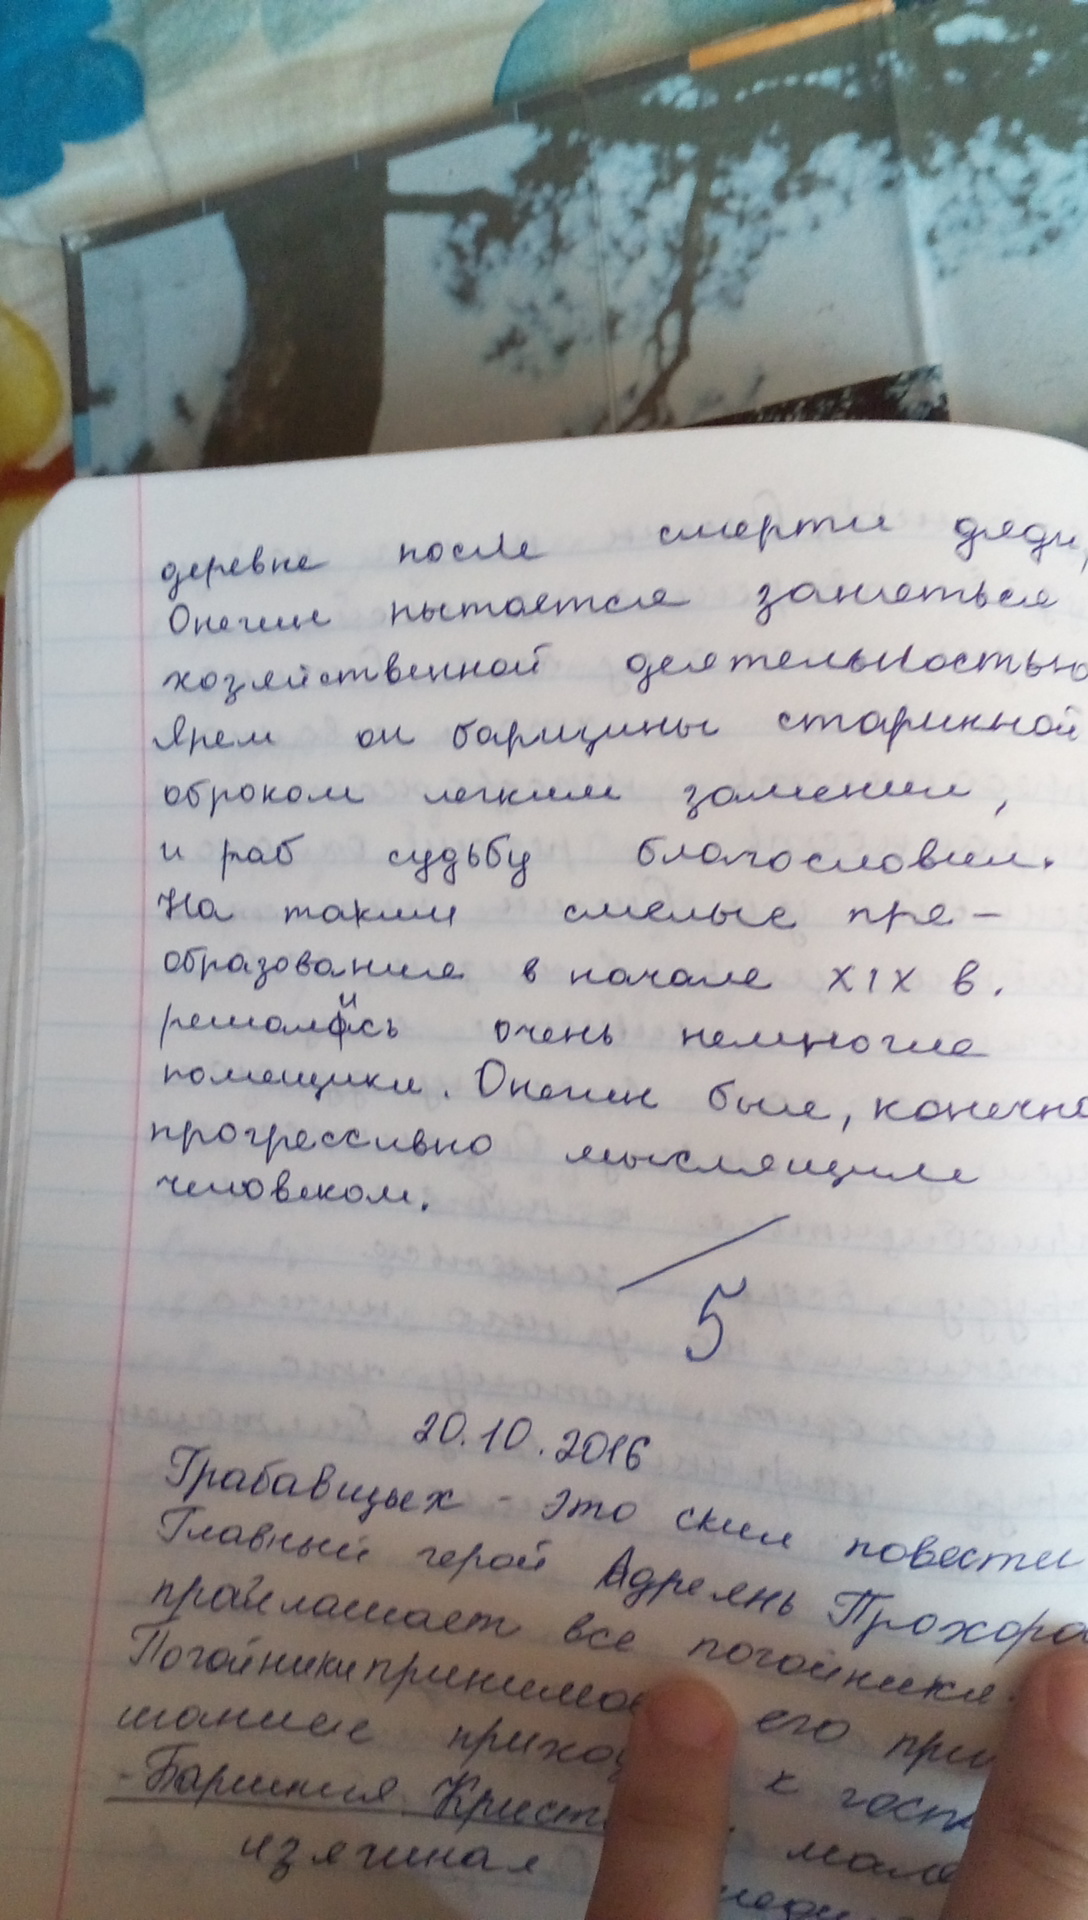 деревне после смерти дяди,
Онегин пытается заняться
хозяйственной деятельностью
Ярем он барщины старинной
оброком легким заменил,
и раб судьбу благословил.
На такие смелые пре-
образование в начале XIX в.
решались очень немногие
помещики. Онегин был, конечно
прогрессивно мыслящим
человеком.
5
20.10.2016
Грабавщых - это скил повести
Главный герой Адреянь Прохоро
прайглашает все погойники.
Погойники принима его при
шание прихо к гост
- Баришня Крист мале
изячиная